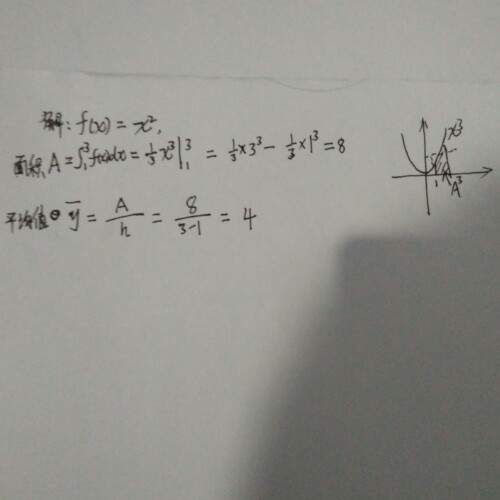 解：f(x) = x²,
面积 A = ∫₁³ f(x)dx = ⅓x³|₁³ = ⅓×3³ − ⅓×1³ = 8
平均值 ȳ = A/h = 8/(3-1) = 4
1
A
3